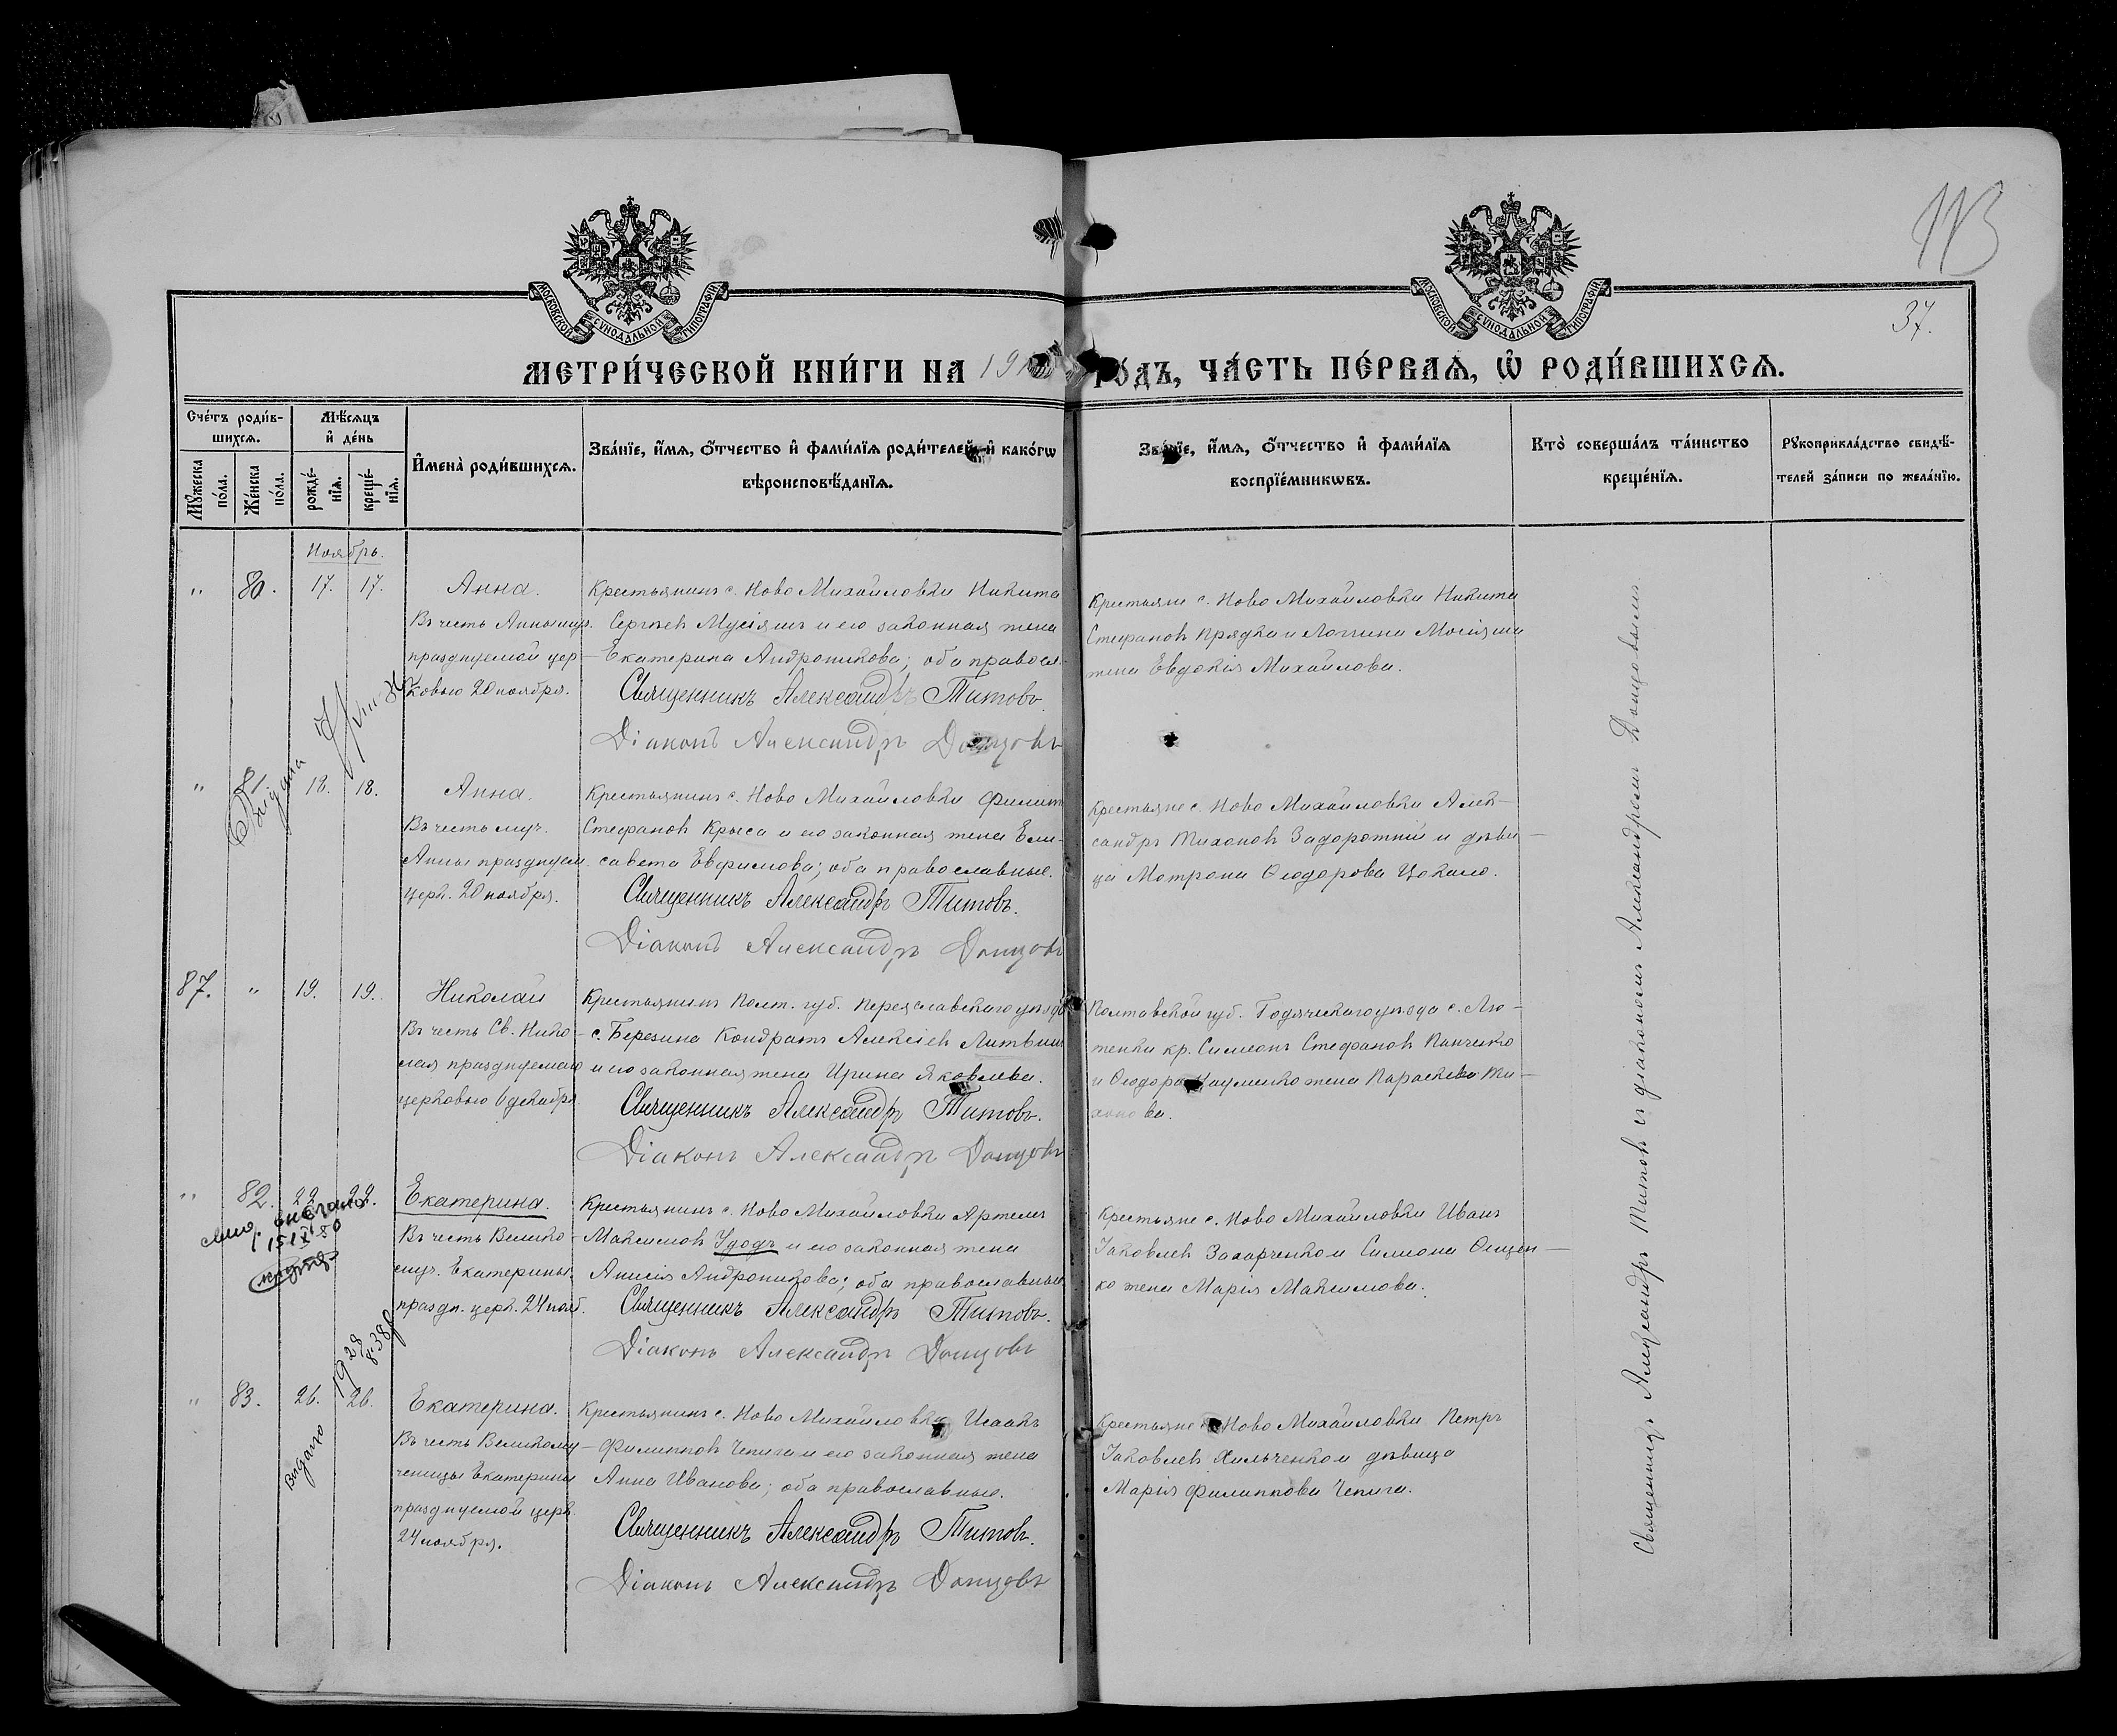 113
37.
МОСКОВСКОЙ СУНОДАЛЬНОЙ ТИПОГРАФІИ
МОСКОВСКОЙ СУНОДАЛЬНОЙ ТИПОГРАФІИ
МЕТРИ́ЧЕСКОЙ КНИ́ГИ НА 191 ГО́ДЪ, ЧА́СТЬ ПЕ́РВАѦ, Ѡ҆ РОДИ́ВШИХСѦ.
Сче́тъ роди́в-
шихсѧ.
Мѣ́сѧцъ
и҆ де́нь
Мꙋ́жеска
по́ла.
Же́нска
по́ла.
рожде́-
нїѧ.
креще́-
нїѧ.
И҆мена̀ роди́вшихсѧ.
Зва́нїе, и҆́мѧ, ѻ҆́тчество и҆ фами́лїѧ роди́телей, и҆ како́гѡ
вѣроисповѣ́данїѧ.
Зва́нїе, и҆́мѧ, ѻ҆́тчество и҆ фами́лїѧ
воспрїе́мникѡвъ.
Кто̀ соверша́лъ та́инство
креще́нїѧ.
Рꙋкоприкла́дство свидѣ́-
телей за́писи по жела́нїю.
Ноябрь.
" 80. 17. 17. Анна.
Въ честь Анны муч.
празднуемой цер-
ковью 20 ноября.
Крестьянинъ с. Ново Михайловки Никита
Сергѣевъ Мусіяшъ и его законная жена
Екатерина Андроникова; оба правосл.
Священникъ Александръ Титовъ.
Діаконъ Александръ Донцовъ
Крестьяне с. Ново Михайловки Никита
Стефановъ Прядка и Логгина Мосіяша
жена Евдокія Михайлова.
" 81. 18. 18. Анна.
Выдана
Въ честь муч.
Анны празднуем.
церк. 20 ноября.
Крестьянинъ с. Ново Михайловки Филиппъ
Стефановъ Крыса и его законная жена Ели-
савета Евфимова; оба православные.
Священникъ Александръ Титовъ.
Діаконъ Александръ Донцовъ
Крестьяне с. Ново Михайловки Алек-
сандръ Тихоновъ Задорожній и дѣви-
ца Мотрона Ѳеодорова Цокало.
87. " 19. 19. Николай
Въ честь Св. Нико-
лая празднуемаго
церковью 6 декабря
Крестьянинъ Полт. губ. Переяславскаго уѣзда
с. Березина Кондратъ Алексіевъ Литвинъ
и его законная жена Ирина Яковлева.
Священникъ Александръ Титовъ.
Діаконъ Александръ Донцовъ
Полтавской губ. Гадячскаго уѣзда с. Лю-
тенки кр. Симеонъ Стефановъ Панченко
и Ѳеодора Науменко жена Параскева Ти-
хонова.
" 82. 22. 22. Екатерина.
15 IX 50
Въ честь Велико-
муч. Екатерины
праздн. церк. 24 нояб.
Крестьянинъ с. Ново Михайловки Артемъ
Максимовъ Удодъ и его законная жена
Анисія Андроникова; оба православные
Священникъ Александръ Титовъ.
Діаконъ Александръ Донцовъ
Крестьяне с. Ново Михайловки Иванъ
Іаковлевъ Захарченко и Симеона Онищен-
ко жена Марія Максимова.
" 83. 26. 26. Екатерина.
19 28/8 38
Видано
Въ честь Великому-
ченицы Екатерины
празднуемой церк.
24 ноября.
Крестьянинъ с. Ново Михайловки Исаакъ
Филипповъ Чепига и его законная жена
Анна Иванова; оба православные.
Священникъ Александръ Титовъ.
Діаконъ Александръ Донцовъ
Крестьяне с. Ново Михайловки Петръ
Іаковлевъ Хильченко и дѣвица
Марія Филиппова Чепига.
Священникъ Александръ Титовъ съ діакономъ Александромъ Донцовымъ